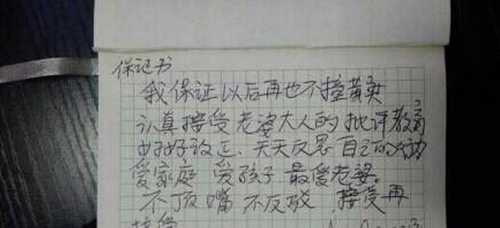 保证书
我保证以后再也不
认真接受老婆大人的批评教育
改正、天天反思自己的
爱家庭 爱孩子 最爱老婆。
不顶嘴 不反驳 接受再